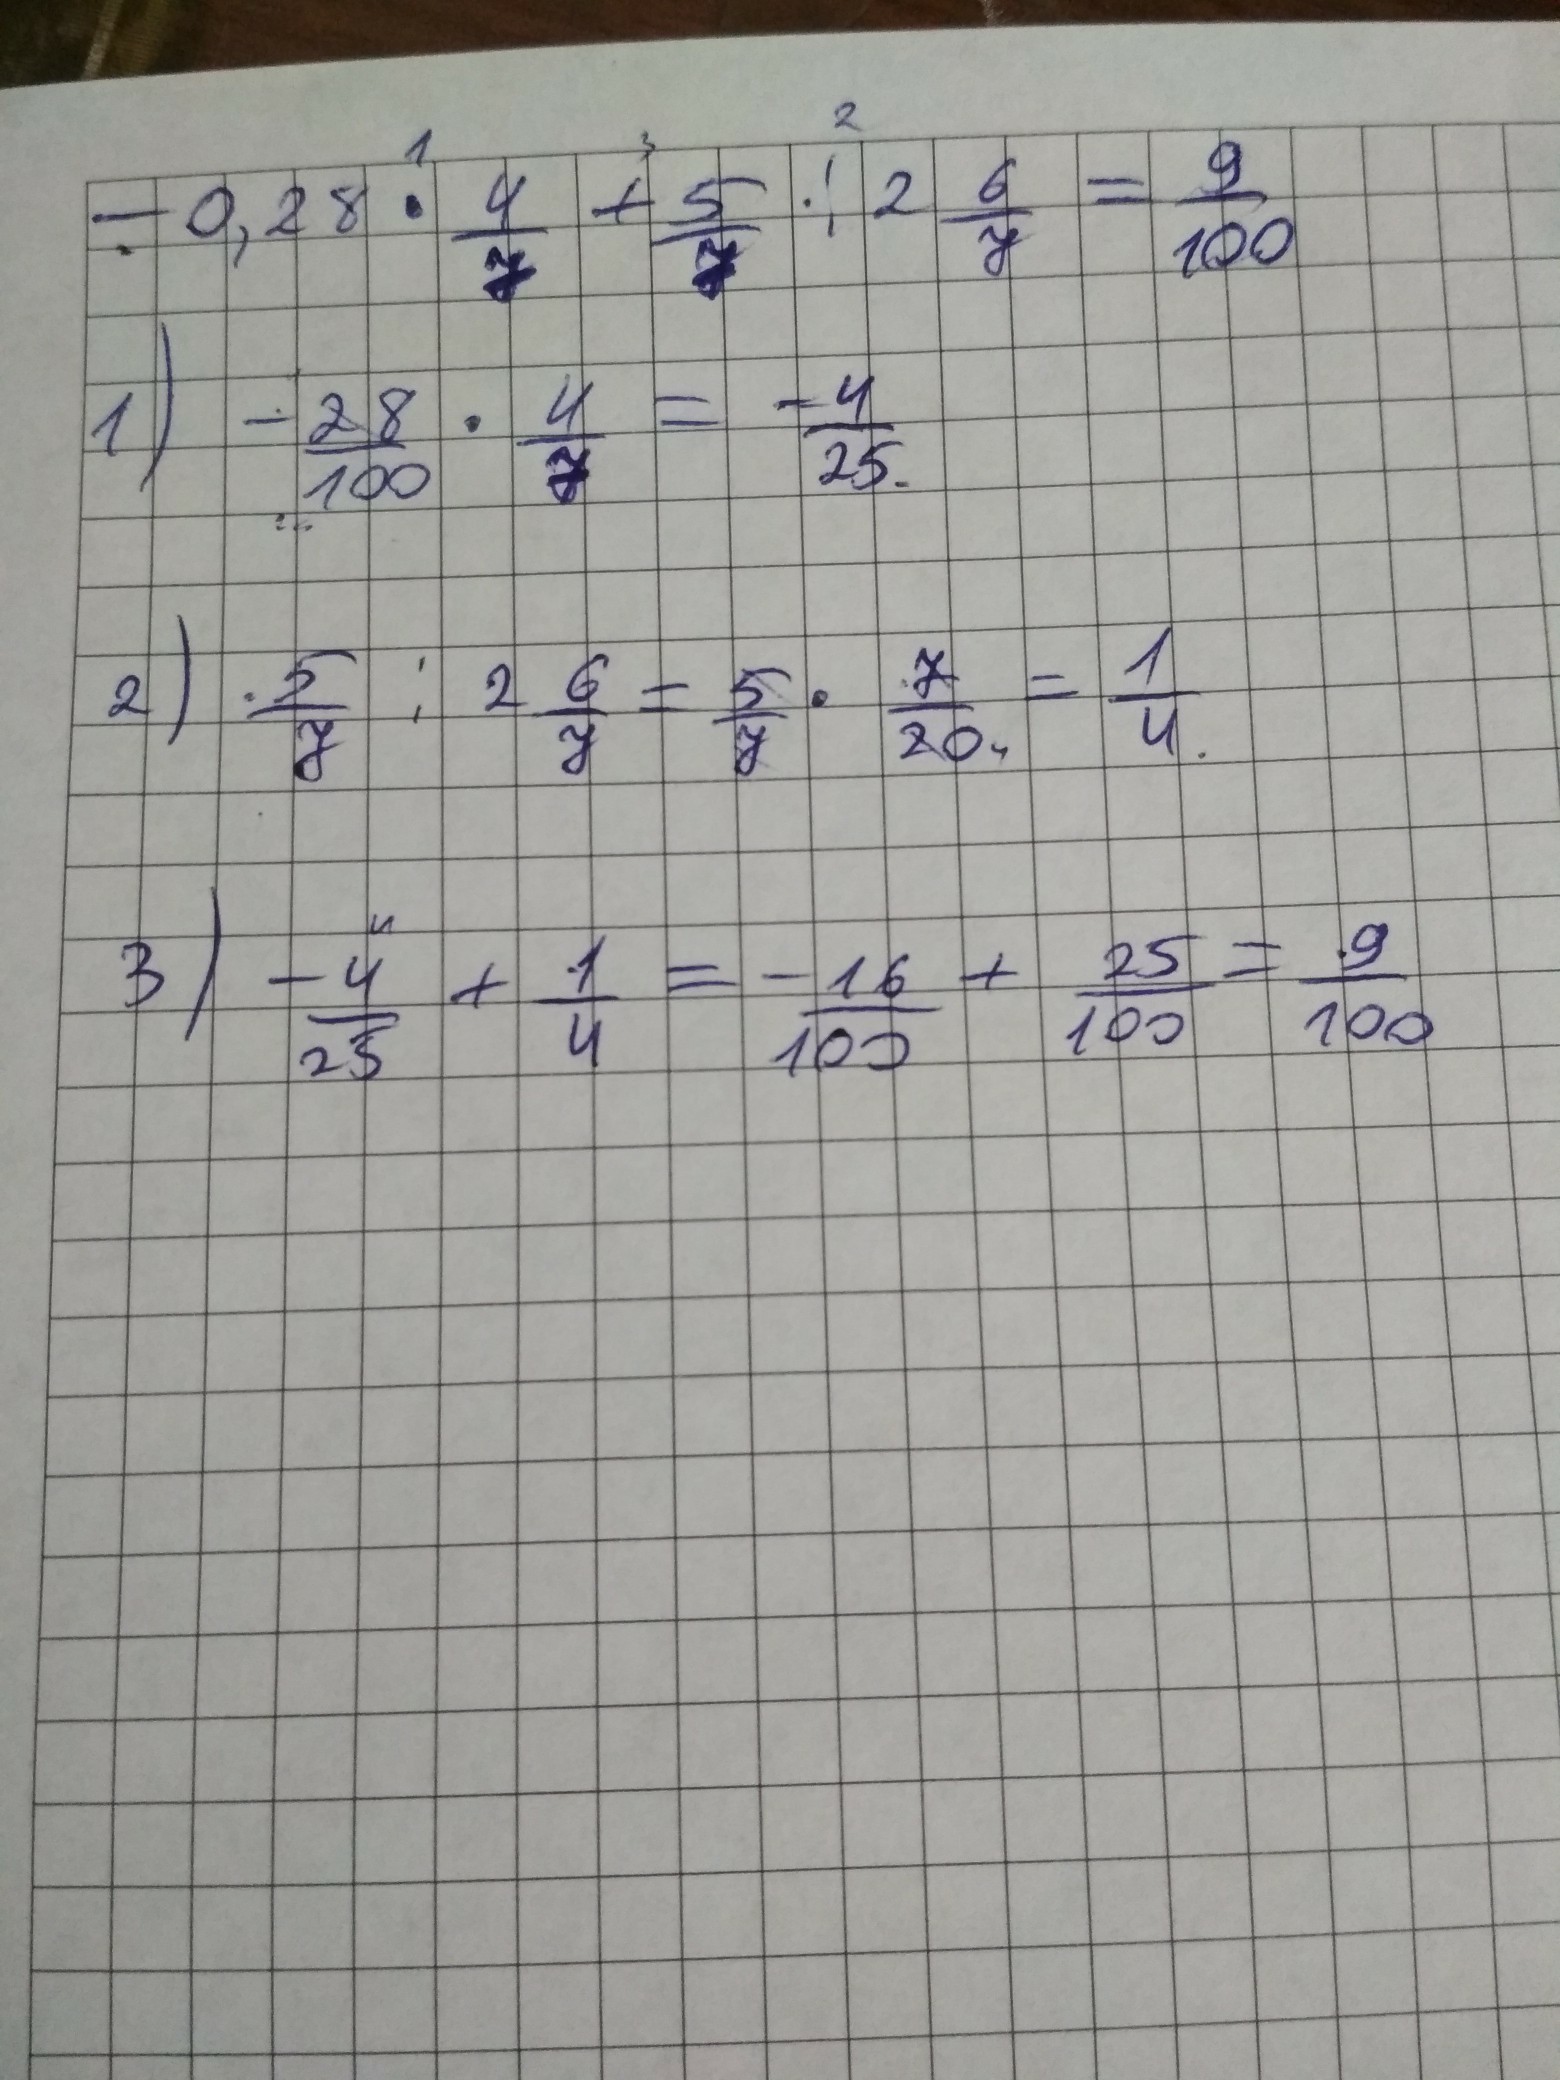 1 3 2
- 0,28 · 4/7 + 5/7 : 2 6/7 = 9/100
1) - 28/100 · 4/7 = -4/25.
2) 5/7 : 2 6/7 = 5/7 · 7/20 = 1/4.
3) -4/25 + 1/4 = -16/100 + 25/100 = 9/100